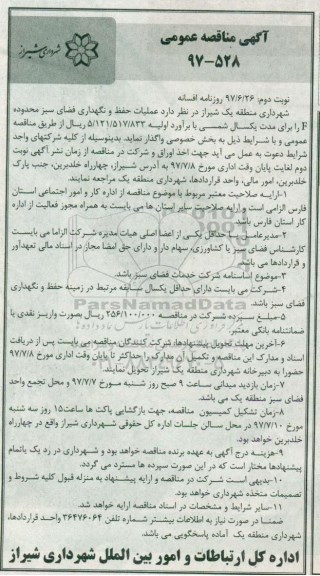 شهرداری شیراز
آگهی مناقصه عمومی
۹۷-۵۲۸
نوبت دوم: ۹۷/۶/۲۶ روزنامه افسانه
شهرداری منطقه یک شیراز در نظر دارد عملیات حفظ و نگهداری فضای سبز محدوده
F را برای مدت یکسال شمسی با برآورد اولیه ۵/۱۲۱/۵۱۷/۸۲۳ ریال از طریق مناقصه
عمومی و با شرایط ذیل به بخش خصوصی واگذار نماید. بدینوسیله از کلیه شرکتهای واجد
شرایط دعوت به عمل می آید جهت اخذ اوراق و شرکت در مناقصه از زمان نشر آگهی نوبت
دوم لغایت پایان وقت اداری مورخ ۹۷/۷/۸ به آدرس شیراز، چهارراه خلدبرین، جنب پارک
خلدبرین، امور مالی، واحد قراردادها، شهرداری منطقه یک مراجعه نمایند.
۱-ارایه صلاحیت معتبر مربوط با موضوع مناقصه از اداره کار و امور اجتماعی استان
فارس الزامی است و ارایه صلاحیت سایر استان ها می بایست به همراه مجوز فعالیت از اداره
کار استان فارس باشد.
۲-مدیرعامل و یا حداقل یکی از اعضا اصلی هیات مدیره شرکت الزاما می بایست
کارشناس فضای سبز یا کشاورزی، سهام دار و دارای حق امضا مجاز در اسناد مالی تعهدآور
و قراردادها می باشد.
۳-موضوع اساسنامه شرکت خدمات فضای سبز باشد.
۴-شرکت می بایست دارای حداقل یکسال سابقه مرتبط در زمینه حفظ و نگهداری
فضای سبز باشد.
۵-مبلغ سپرده شرکت در مناقصه ۲۵۶/۱۰۰/۰۰۰ ریال بصورت واریز نقدی یا
ضمانتنامه بانکی معتبر.
۶-آخرین مهلت تحویل پیشنهادها: شرکت کنندگان مناقصه می بایست پس از دریافت
اسناد و مدارک این مناقصه و تکمیل آن مدارک را حداکثر تا پایان وقت اداری مورخ ۹۷/۷/۸
حضورا به دبیرخانه شهرداری منطقه یک شیراز تحویل نمایند.
۷-زمان بازدید میدانی ساعت ۹ صبح روز شنبه مورخ ۹۷/۷/۷ و محل تجمع واحد
فضای سبز منطقه یک می باشد.
۸-زمان تشکیل کمیسیون مناقصه، جهت بازگشایی پاکت ها ساعت۱۵ روز سه شنبه
مورخ ۹۷/۷/۱۰ در محل سالن جلسات اداره کل حقوقی شهرداری شیراز واقع در چهارراه
خلدبرین خواهد بود.
۹-هزینه درج آگهی به عهده برنده مناقصه خواهد بود و شهرداری در رد یک یاتمام
پیشنهادها مختار است که در این صورت سپرده ها مسترد می گردد.
۱۰-بدیهی است شرکت در مناقصه و ارایه پیشنهاد به منزله قبول کلیه شروط و
تصمیمات متخذه شهرداری خواهد بود.
۱۱-سایر شرایط و مشخصات در اسناد مناقصه ارایه خواهد شد.
ضمنا در صورت نیاز به اطلاعات بیشتر شماره تلفن ۳۶۴۷۶۰۶۴ واحد قراردادها،
شهرداری منطقه یک آماده پاسخگویی می باشد.
اداره کل ارتباطات و امور بین الملل شهرداری شیراز
ParsNamadData